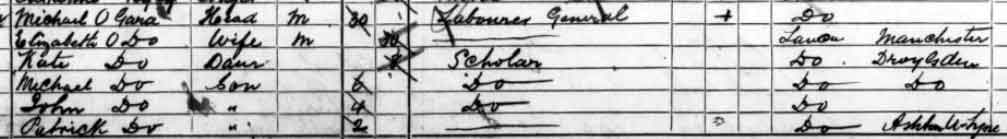 Michael O Gara Head M 30 Labourer General + Do
Elizabeth O Do Wife M 30 Lancs Manchester
Kate Do Daur 8 Scholar Do Droylsden
Michael Do Son 6 Do Do Do
John Do " 4 Do Do
Patrick Do " 2 Do Ashton U Lyne